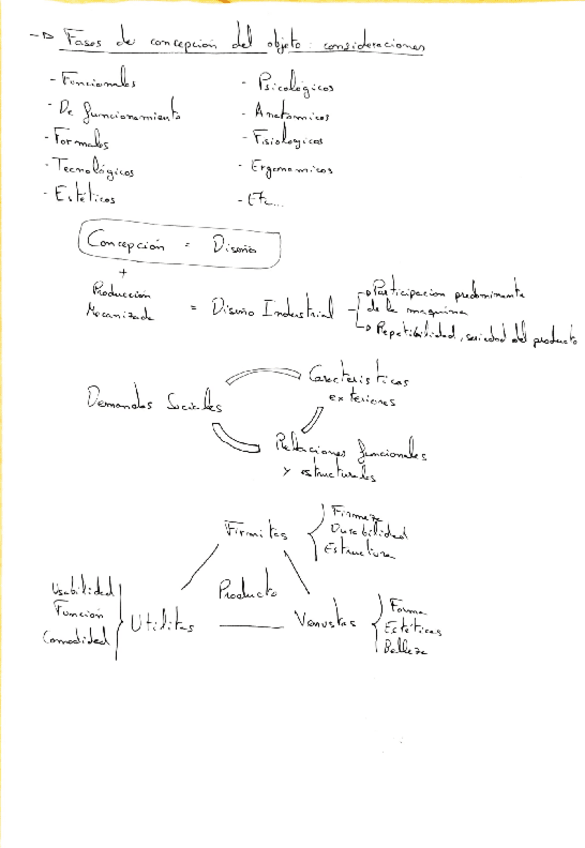 → Fases de concepción del objeto: consideraciones
- Funcionales
- De funcionamiento
- Formales
- Tecnológicos
- Estéticos
- Psicológicos
- Anatomicos
- Fisiologicos
- Ergonomicos
- Etc...
Concepción = Diseño
+
Producción
Mecanizada
= Diseño Industrial
→ Participacion predominante
de la maquina
→ Repetibilidad, seriedad del producto
Demandas Sociales
Caracteristicas
exteriores
Relaciones funcionales
y estructurales
Firmitas
Firmeza
Durabilidad
Estructura
Producto
Usabilidad
Función
Comodidad
Utilitas
Venustas
Forma
Estéticas
Belleza